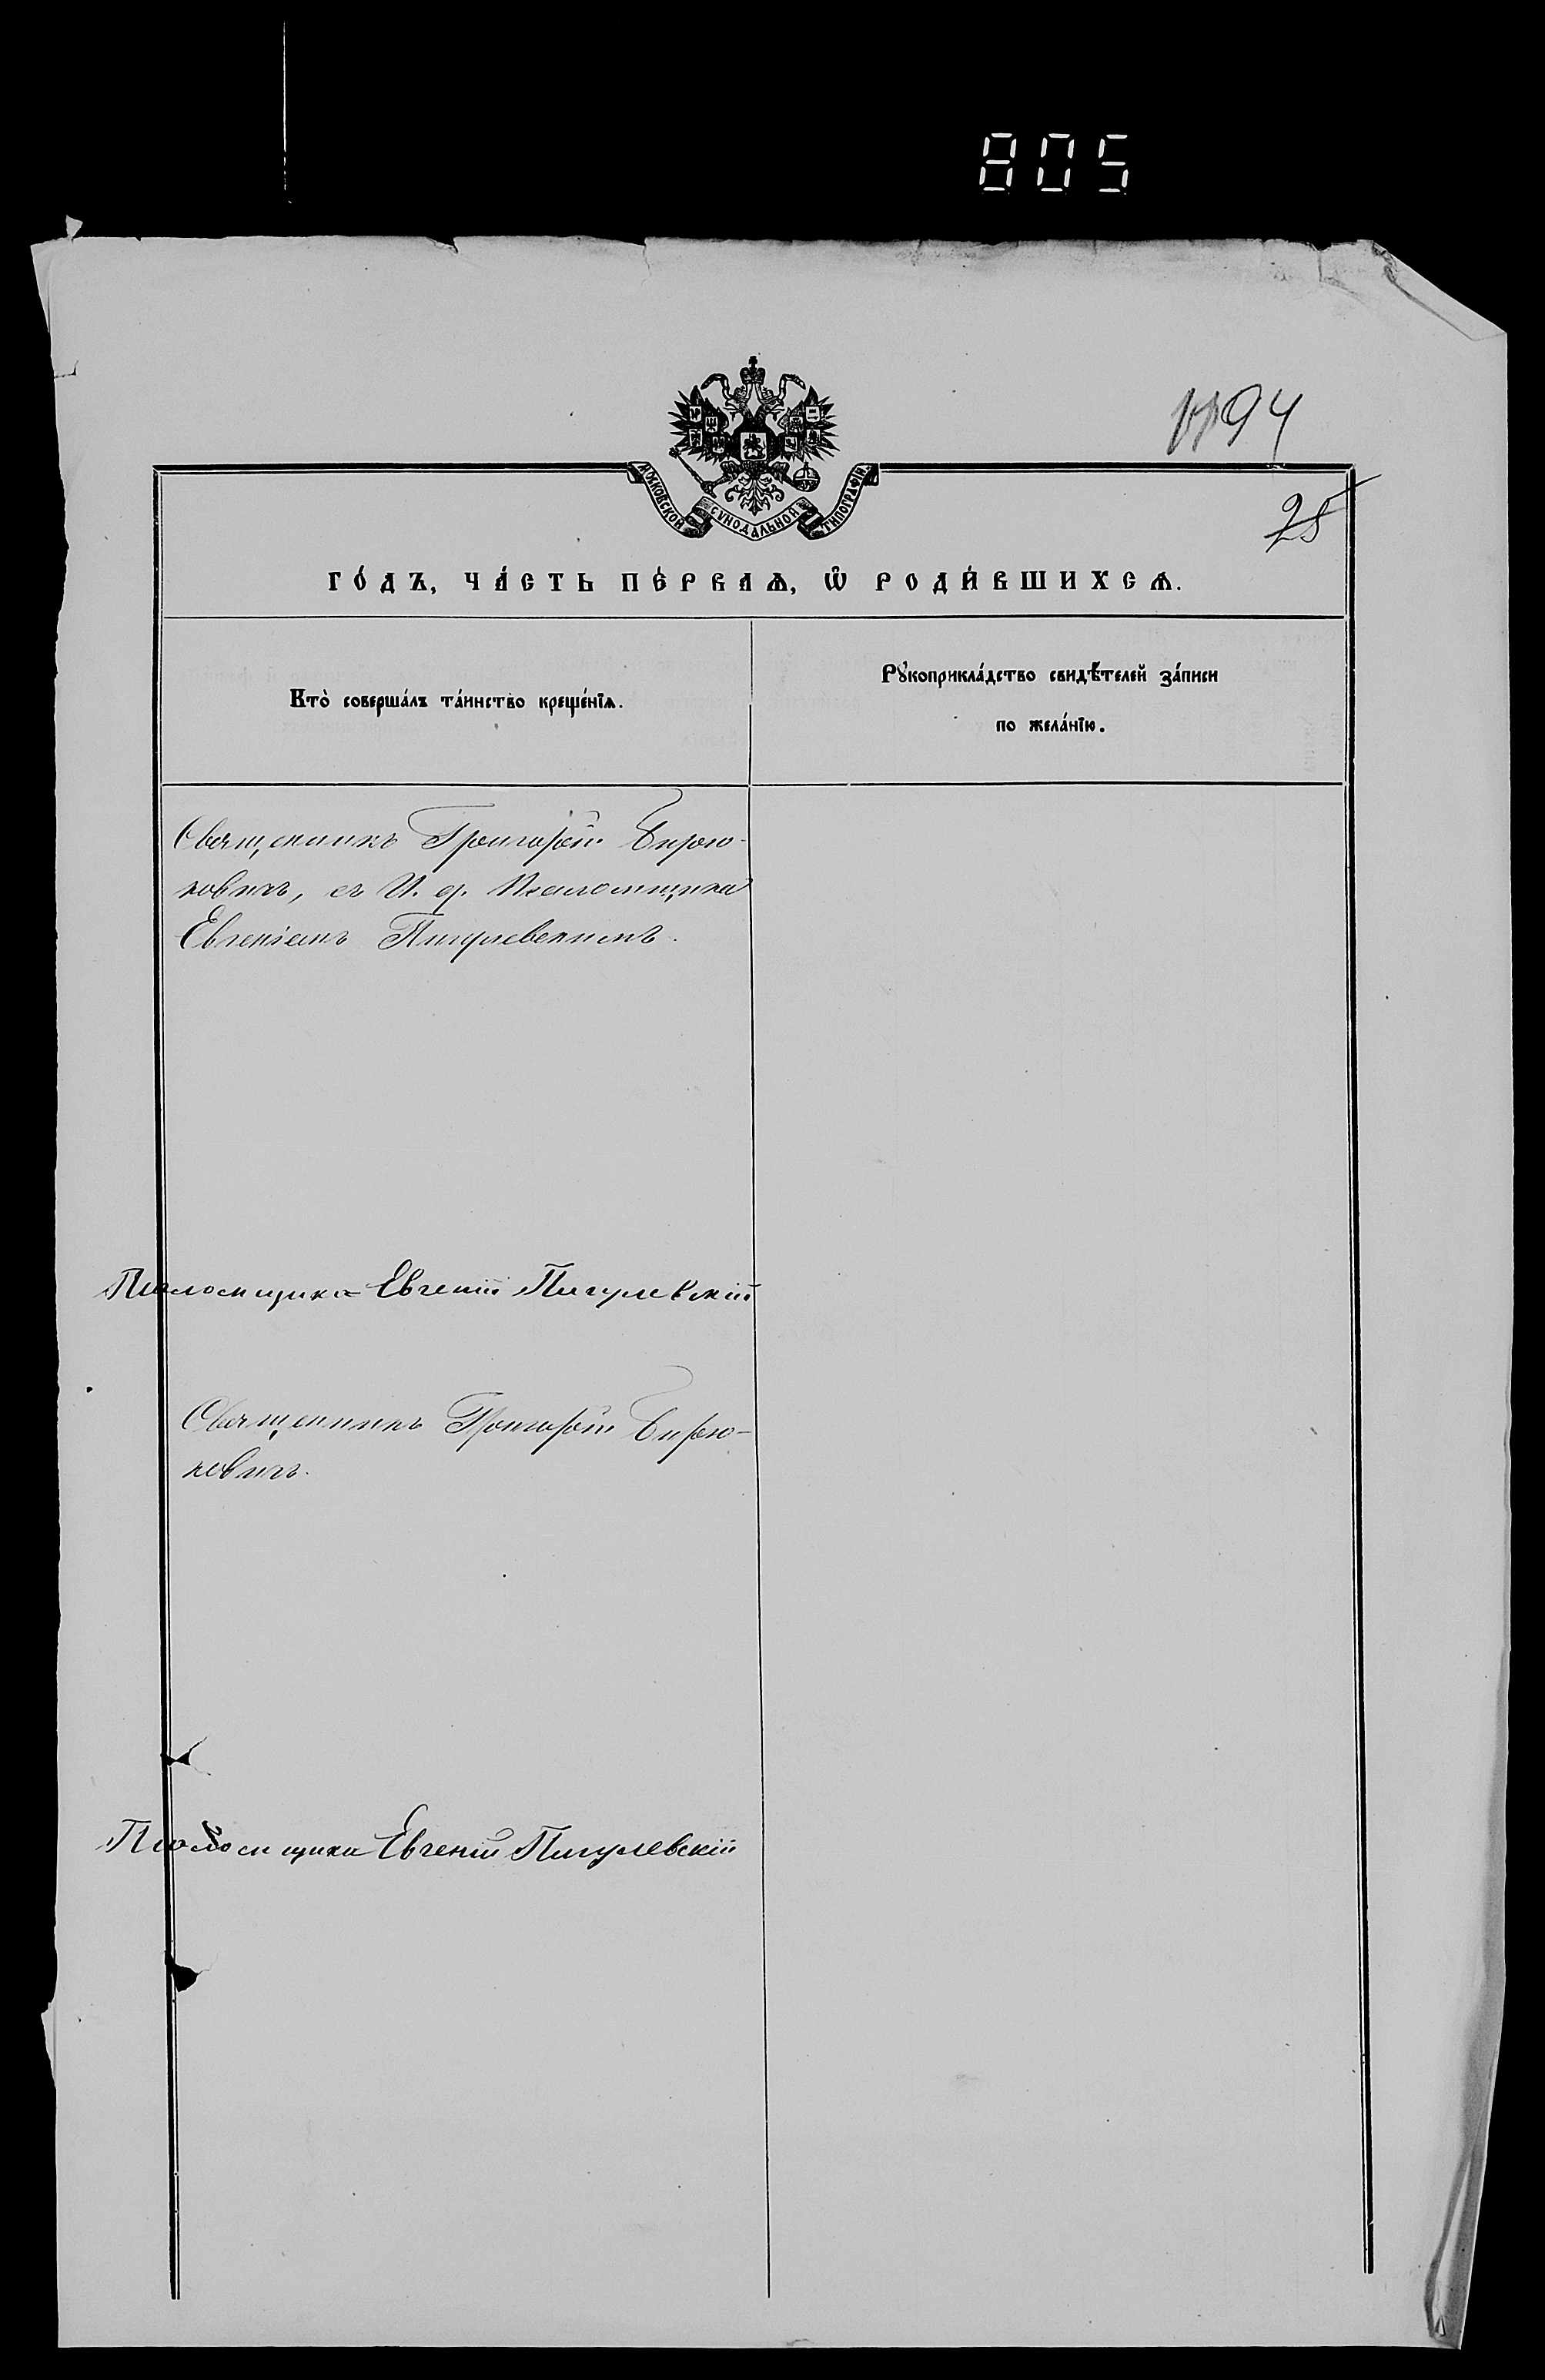 805
94
МОСКОВСКОЙ СѴНОДАЛЬНОЙ ТИПОГРАФІИ.
25
ГО́ДЪ, ЧА́СТЬ ПЕ́РВАѦ, Ѡ҆ РОДИ́ВШИХСѦ.
Кто̀ соверша́лъ та́инство креще́нїѧ.
Рꙋкоприкла́дство свидѣ́телей за́писи
по жела́нїю.
Священникъ Григорій Бирю-
ковичъ, съ И. д. Псаломщика
Евгеніемъ Пигулевскимъ.
Псаломщикъ Евгеній Пигулевскій
Священникъ Григорій Бирю-
ковичъ.
Псаломщикъ Евгеній Пигулевскій